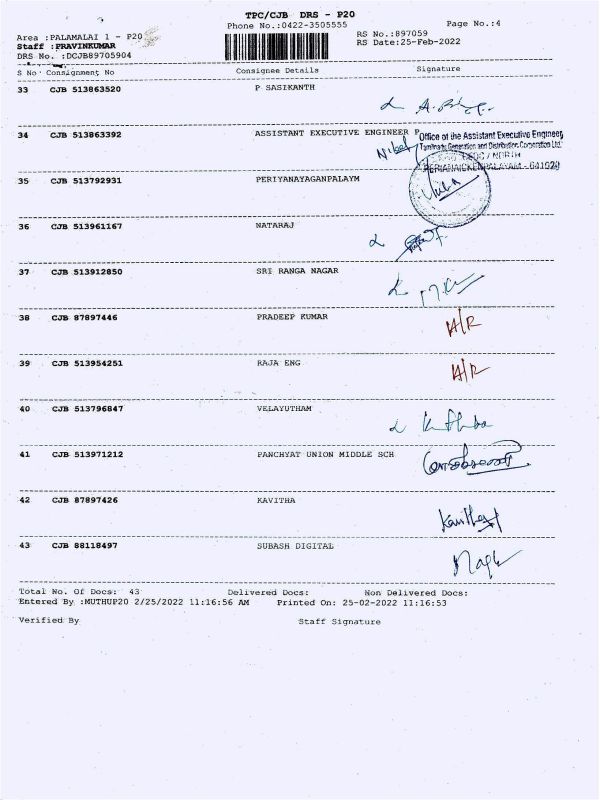 TPC/CJB DRS - P20
Phone No.:0422-3505555
Page No.:4
Area :PALAMALAI 1 - P20
Staff :PRAVINKUMAR
DRS No. :DCJB89705904
RS No.:897059
RS Date:25-Feb-2022
S No Consignment No Consignee Details Signature
33 CJB 513863520 P SASIKANTH
34 CJB 513863392 ASSISTANT EXECUTIVE ENGINEER P
Office of the Assistant Executive Engineer,
Tamilnadu Generation and Distribution Corporation Ltd.
PERIANAICKENPALAYAM - 641020
35 CJB 513792931 PERIYANAYAGANPALAYM
36 CJB 513961167 NATARAJ
37 CJB 513912850 SRI RANGA NAGAR
38 CJB 87897446 PRADEEP KUMAR
39 CJB 513954251 RAJA ENG
40 CJB 513796847 VELAYUTHAM
41 CJB 513971212 PANCHYAT UNION MIDDLE SCH
42 CJB 87897426 KAVITHA
43 CJB 88118497 SUBASH DIGITAL
Total No. Of Docs: 43 Delivered Docs: Non Delivered Docs:
Entered By :MUTHUP20 2/25/2022 11:16:56 AM Printed On: 25-02-2022 11:16:53
Verified By Staff Signature